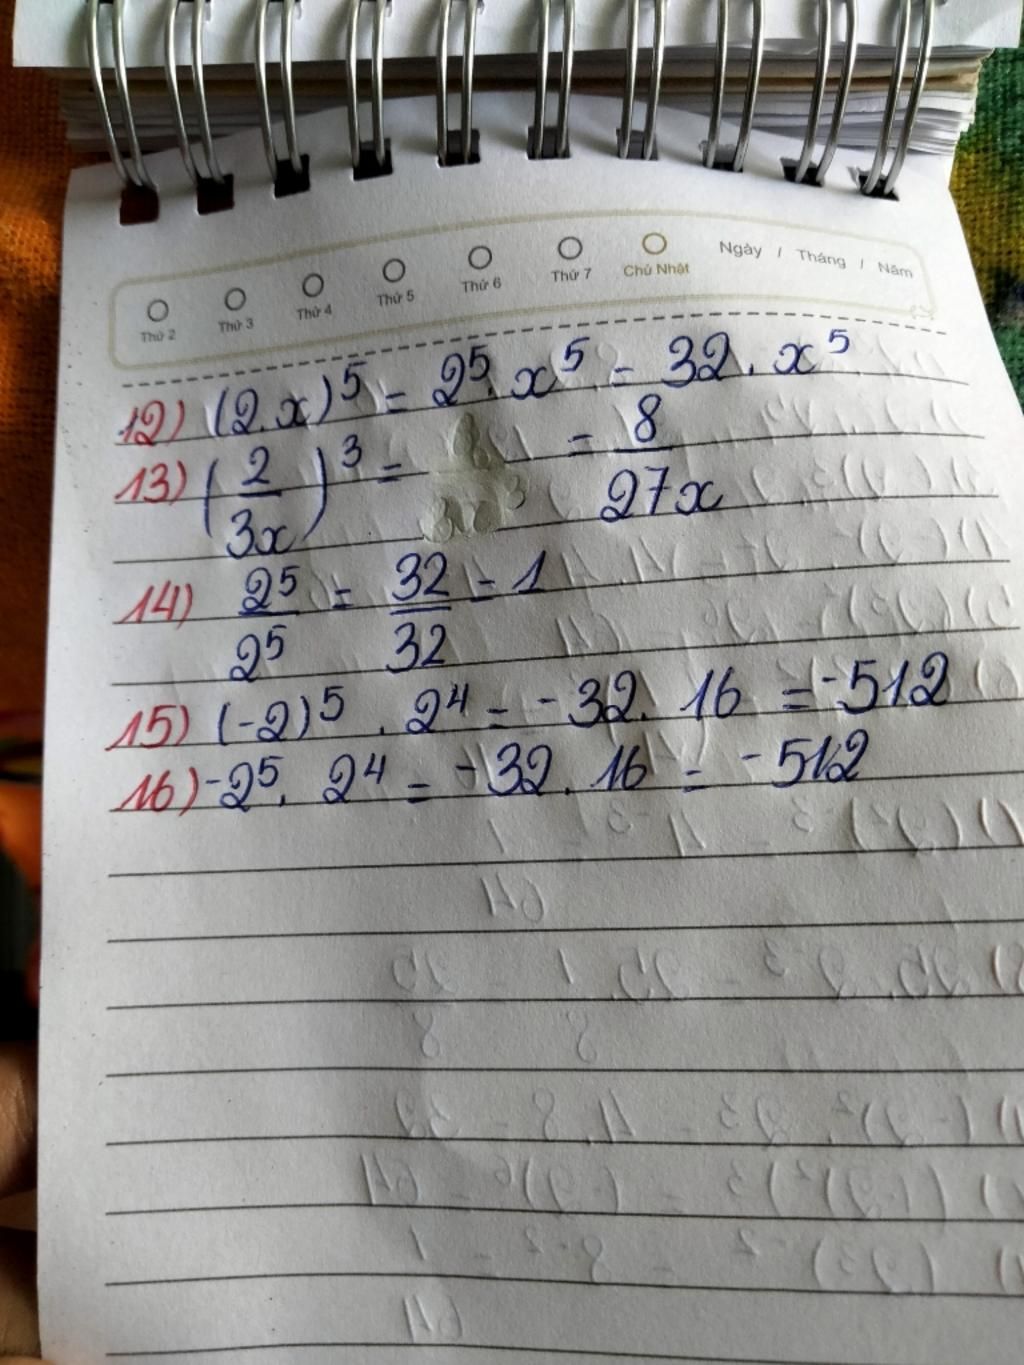 Thứ 2 Thứ 3 Thứ 4 Thứ 5 Thứ 6 Thứ 7 Chủ Nhật Ngày / Tháng / Năm
12) (2.x)⁵ = 2⁵. x⁵ = 32. x⁵
13) (2/3x)³ = = 8/27x
14) 2⁵/2⁵ = 32/32 = 1
15) (-2)⁵ . 2⁴ = -32. 16 = -512
16) -2⁵. 2⁴ = -32. 16 = -512